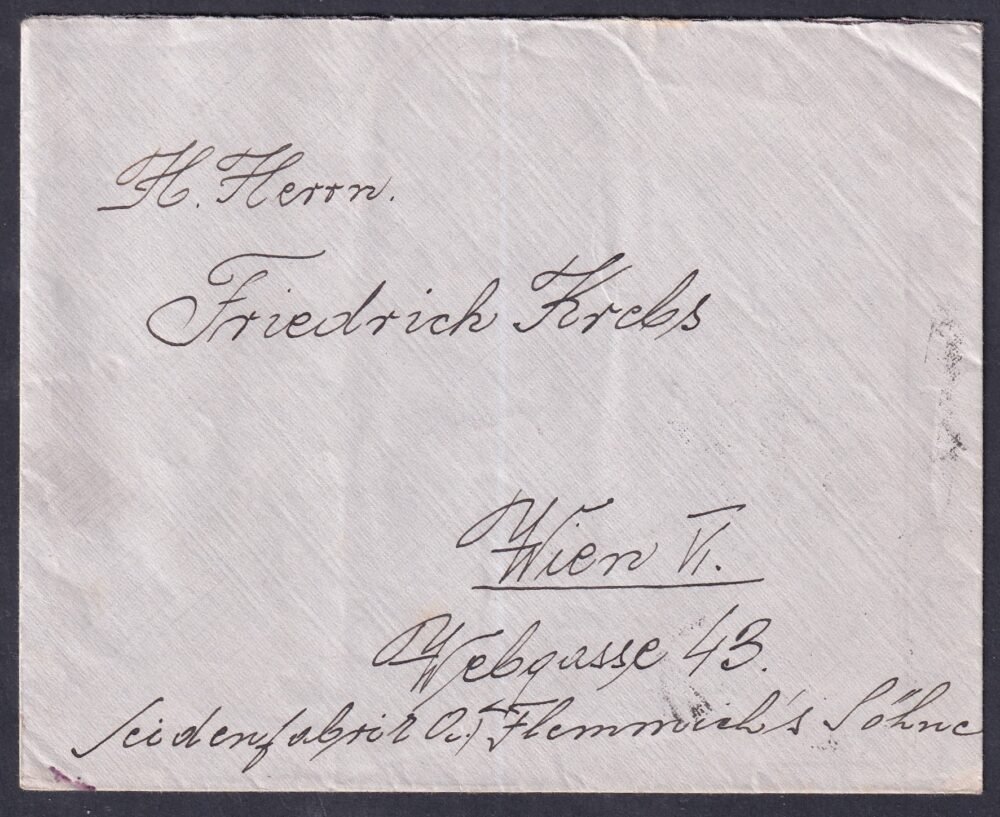 H. Herrn.
Friedrich Krebs
Wien VI.
Webgasse 43.
Seidenfabrik Flemmich's Söhne